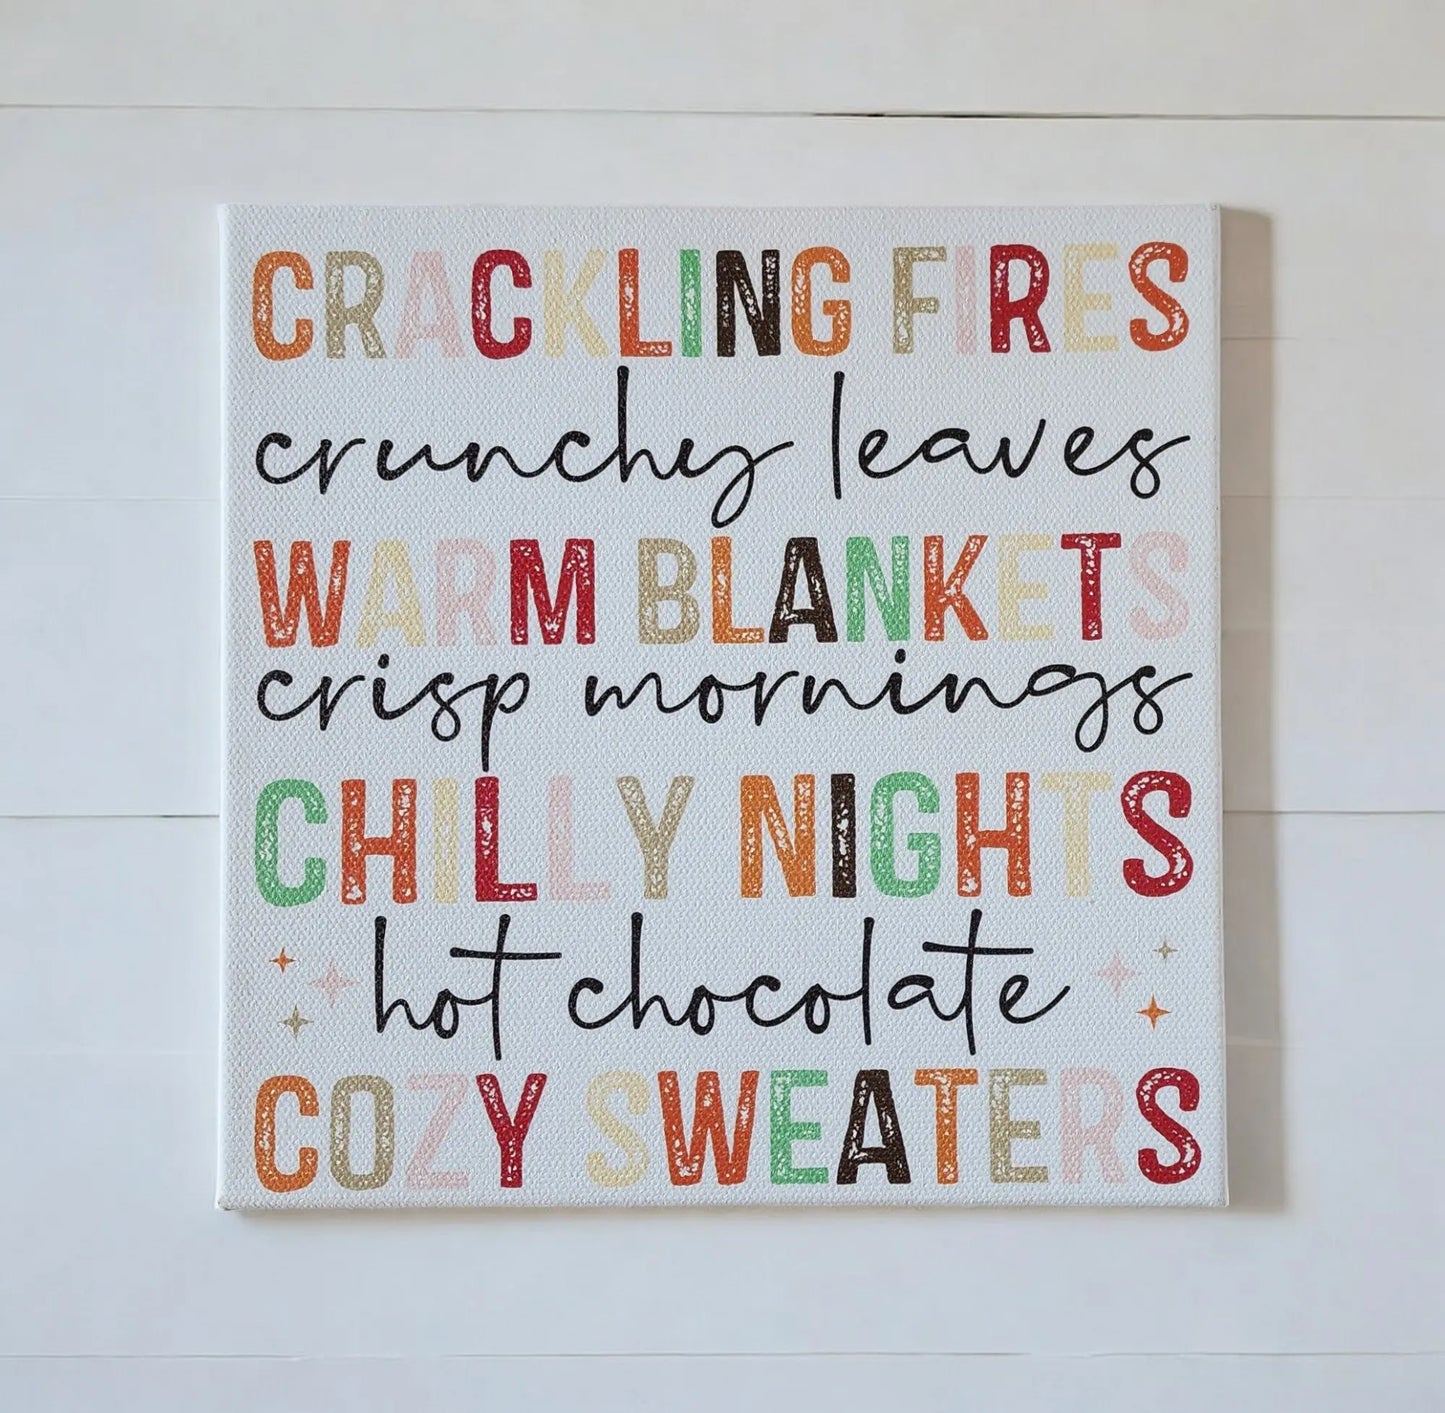 CRACKLING FIRES
crunchy leaves
WARM BLANKETS
crisp mornings
CHILLY NIGHTS
hot chocolate
COZY SWEATERS